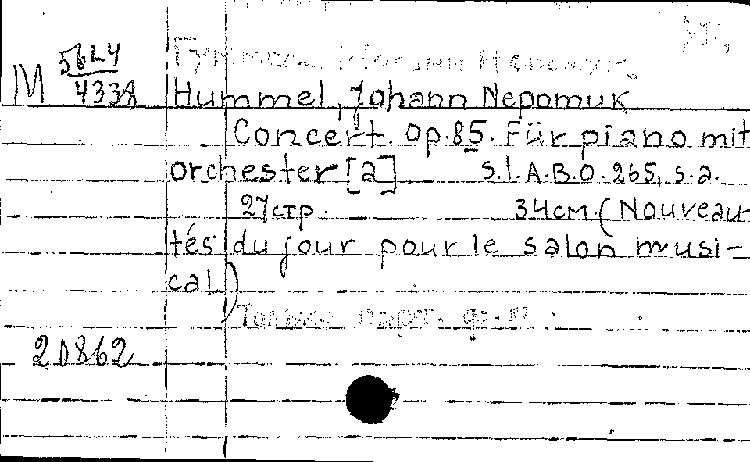 М 5624/4338
Hummel, Johann Nepomuk
Concert. Op. 85. Für piano mit
orchester [a] S.l. A.B.O. 265, s.a.
27 стр. 34 см. (Nouveau-
tés du jour pour le salon musi-
cal)
Только парт. ф.-п.
20862